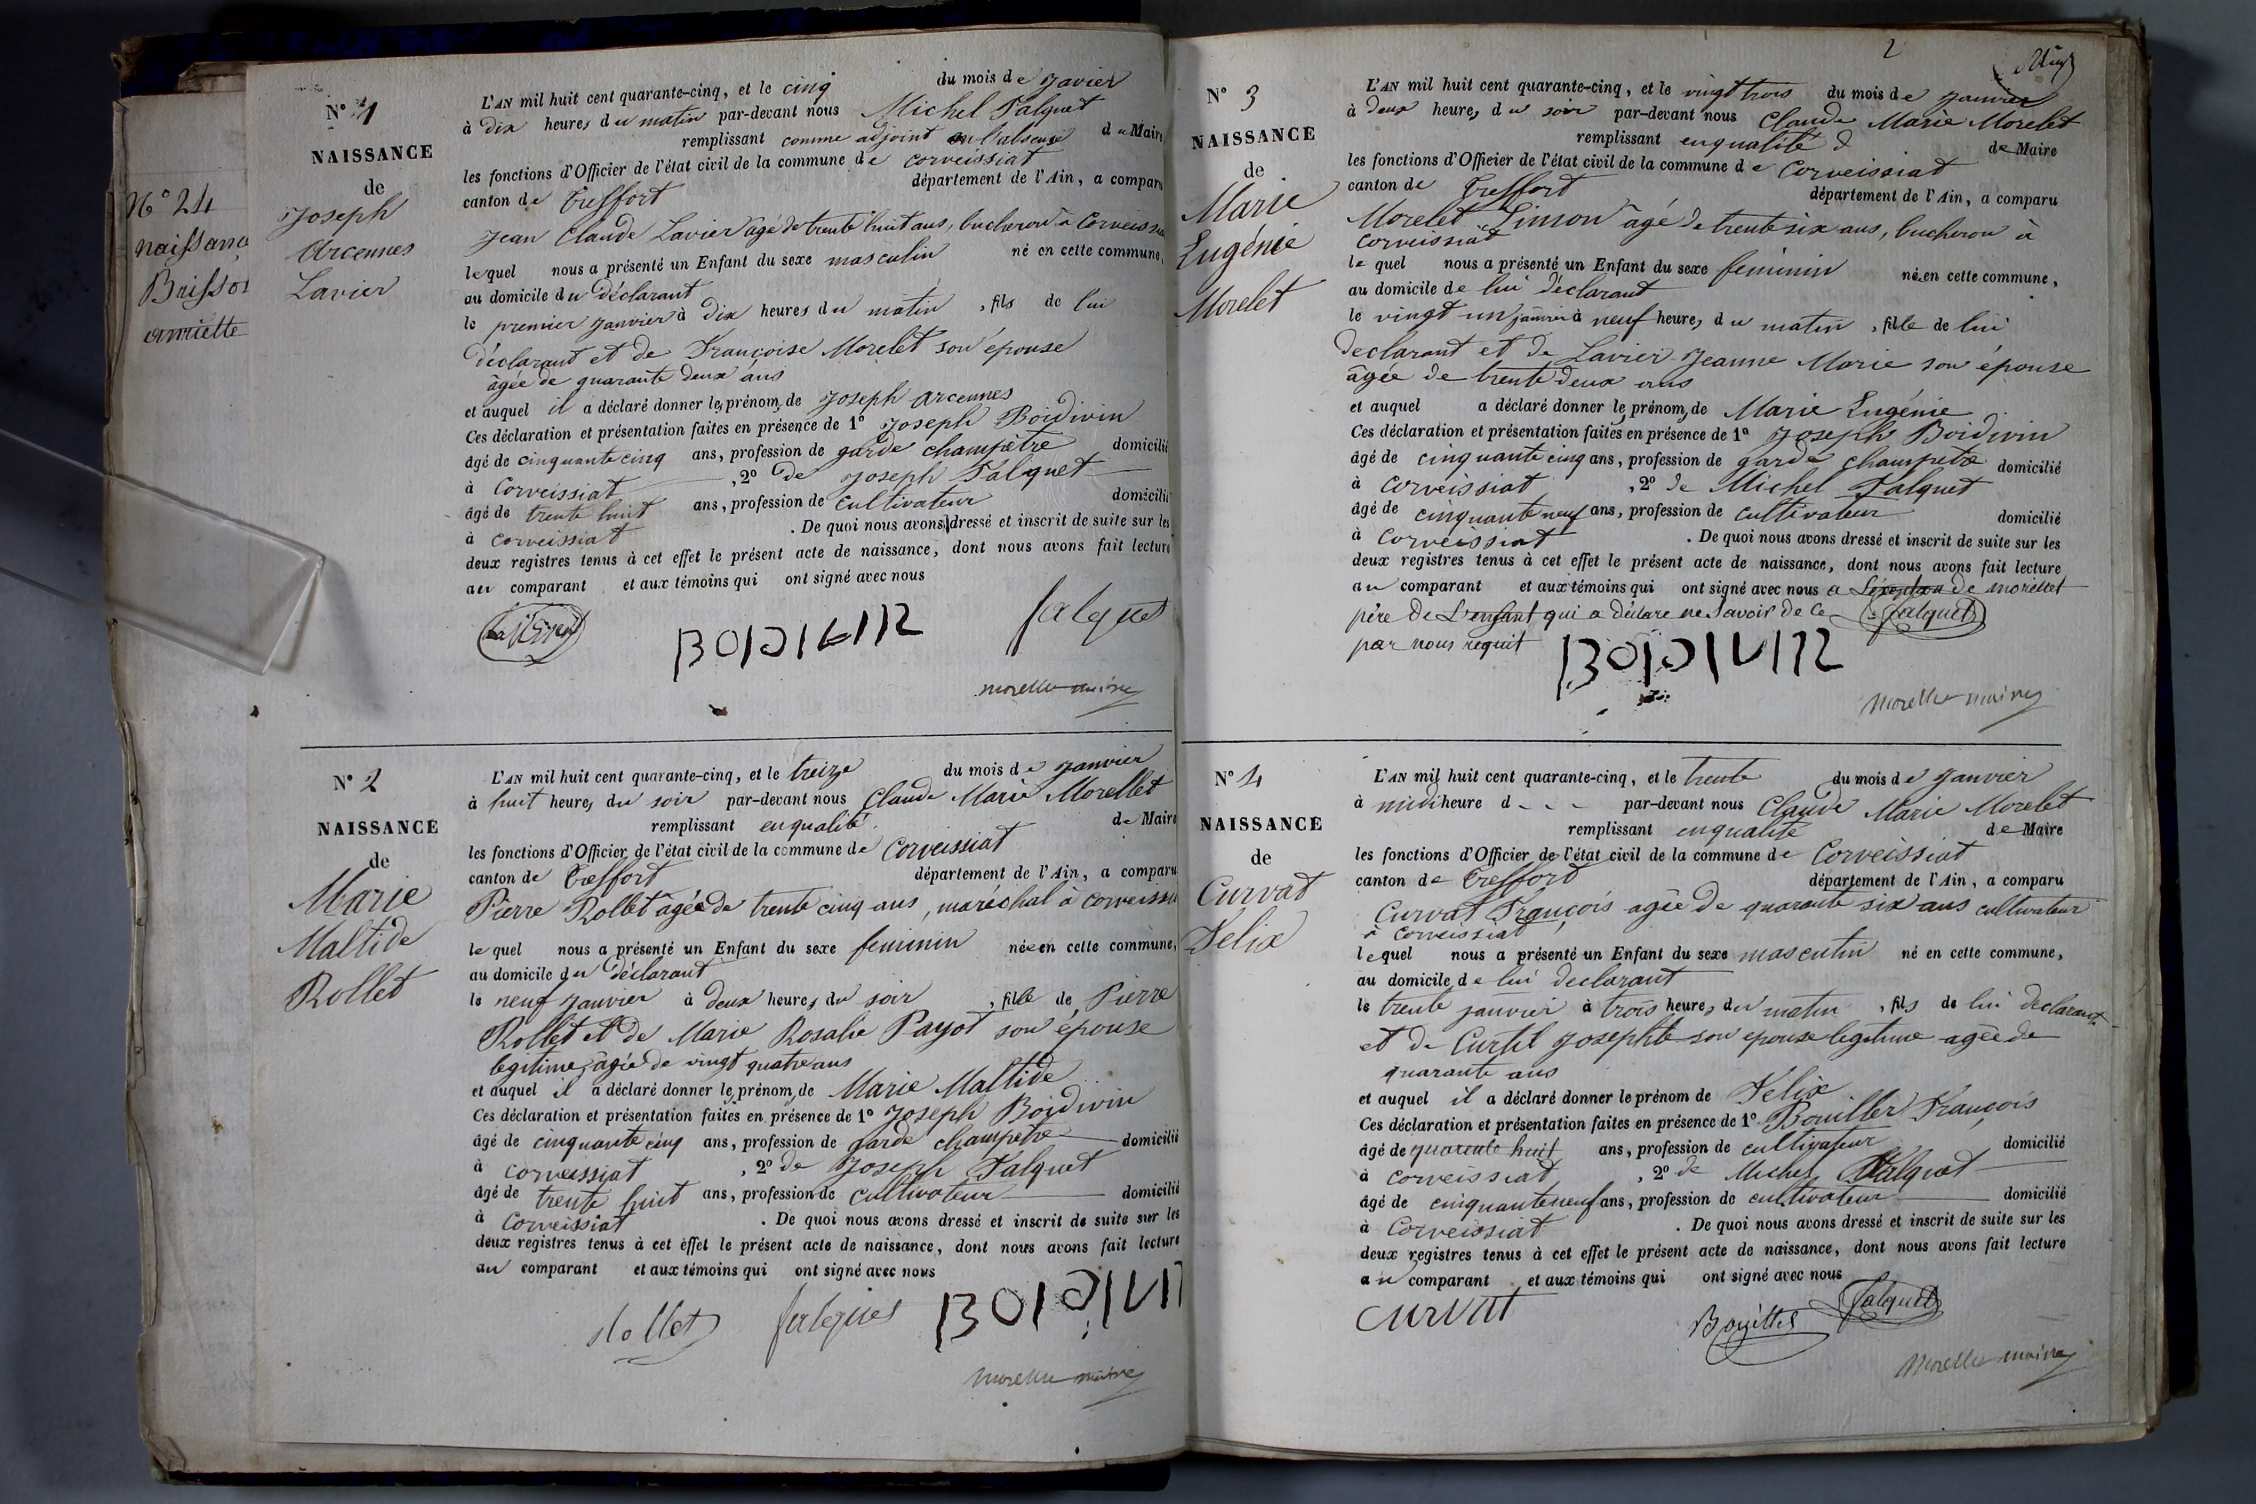 N° 24
naissance
Buisson
N° 1
NAISSANCE
de
Joseph
Arcennes
Lavier
L'AN mil huit cent quarante-cinq, et le cinq du mois de Javier
à dix heures du matin par-devant nous Michel Falquet
remplissant comme adjoint en l'absence du Maire
les fonctions d'Officier de l'état civil de la commune de Corveissiat
canton de Treffort département de l'Ain, a comparu
Jean Claude Lavier âgé de trente huit ans, bucheron à Corveissiat
lequel nous a présenté un Enfant du sexe masculin né en cette commune,
au domicile du déclarant
le premier janvier à dix heures du matin, fils de lui
déclarant et de Françoise Morelet son épouse
âgée de quarante deux ans
et auquel il a déclaré donner les prénoms de Joseph Arcennes
Ces déclaration et présentation faites en présence de 1° Joseph Boidivin
âgé de cinquante cinq ans, profession de garde champêtre domicilié
à Corveissiat, 2° de Joseph Falquet
âgé de trente huit ans, profession de cultivateur domicilié
à Corveissiat. De quoi nous avons dressé et inscrit de suite sur les
deux registres tenus à cet effet le présent acte de naissance, dont nous avons fait lecture
au comparant et aux témoins qui ont signé avec nous
falques
morellet maire
N° 2
NAISSANCE
de
Marie
Maltide
Rollet
L'AN mil huit cent quarante-cinq, et le treize du mois de janvier
à huit heures du soir par-devant nous Claude Marie Morellet
remplissant en qualité de Maire
les fonctions d'Officier de l'état civil de la commune de Corveissiat
canton de Treffort département de l'Ain, a comparu
Pierre Rollet âgée de trente cinq ans, maréchal à corveissiat
lequel nous a présenté un Enfant du sexe feminin née en cette commune,
au domicile du déclarant
le neuf janvier à deux heures du soir, fille de Pierre
Rollet et de Marie Rosalie Payot son épouse
legitime, âgée de vingt quatre ans
et auquel il a déclaré donner les prénoms de Marie Maltide
Ces déclaration et présentation faites en présence de 1° Joseph Boidivin
âgé de cinquante cinq ans, profession de garde champetre domicilié
à corveissiat, 2° de Joseph Falquet
âgé de trente huit ans, profession de cultivateur domicilié
à Corveissiat. De quoi nous avons dressé et inscrit de suite sur les
deux registres tenus à cet effet le présent acte de naissance, dont nous avons fait lecture
au comparant et aux témoins qui ont signé avec nous
Rollet falques
morellet maire
2
N° 3
NAISSANCE
de
Marie
Eugénie
Morelet
L'AN mil huit cent quarante-cinq, et le vingt trois du mois de janvier
à deux heures du soir par-devant nous Claude Marie Morelet
remplissant en qualité d de Maire
les fonctions d'Officier de l'état civil de la commune de Corveissiat
canton de Treffort département de l'Ain, a comparu
Morelet Simon âgé de trente six ans, bucheron à
corveissiat
lequel nous a présenté un Enfant du sexe feminin née en cette commune,
au domicile de lui déclarant
le vingt un janvier à neuf heures du matin, fille de lui
declarant et de Lavier Jeanne Marie son épouse
âgée de trente deux ans
et auquel a déclaré donner les prénoms de Marie Eugénie
Ces déclaration et présentation faites en présence de 1° Joseph Boidivin
âgé de cinquante cinq ans, profession de garde champetre domicilié
à corveissiat, 2° de Michel Falquet
âgé de cinquante neuf ans, profession de cultivateur domicilié
à Corveissiat. De quoi nous avons dressé et inscrit de suite sur les
deux registres tenus à cet effet le présent acte de naissance, dont nous avons fait lecture
au comparant et aux témoins qui ont signé avec nous a de morellet
père de L'enfant qui a déclare ne savoir de ce Falquet
par nous requit
morellet maire
N° 4
NAISSANCE
de
Curvat
Felix
L'AN mil huit cent quarante-cinq, et le trente du mois de janvier
à midi heure d par-devant nous Claude Marie Morelet
remplissant en qualité de Maire
les fonctions d'Officier de l'état civil de la commune de Corveissiat
canton de Treffort département de l'Ain, a comparu
Curvat François agée de quarante six ans cultivateur
à corveissiat
lequel nous a présenté un Enfant du sexe masculin né en cette commune,
au domicile de lui declarant
le trente janvier à trois heures du matin, fils de lui declarant
et de Curtil Josephte son epouse legitime agée de
quarante ans
et auquel il a déclaré donner le prénom de Felix
Ces déclaration et présentation faites en présence de 1° Bouiller François
âgé de quarante huit ans, profession de cultivateur domicilié
à corveissiat, 2° de Michel Falquet
âgé de cinquante neuf ans, profession de cultivateur domicilié
à Corveissiat. De quoi nous avons dressé et inscrit de suite sur les
deux registres tenus à cet effet le présent acte de naissance, dont nous avons fait lecture
au comparant et aux témoins qui ont signé avec nous
curvat Falquet
morellet maire